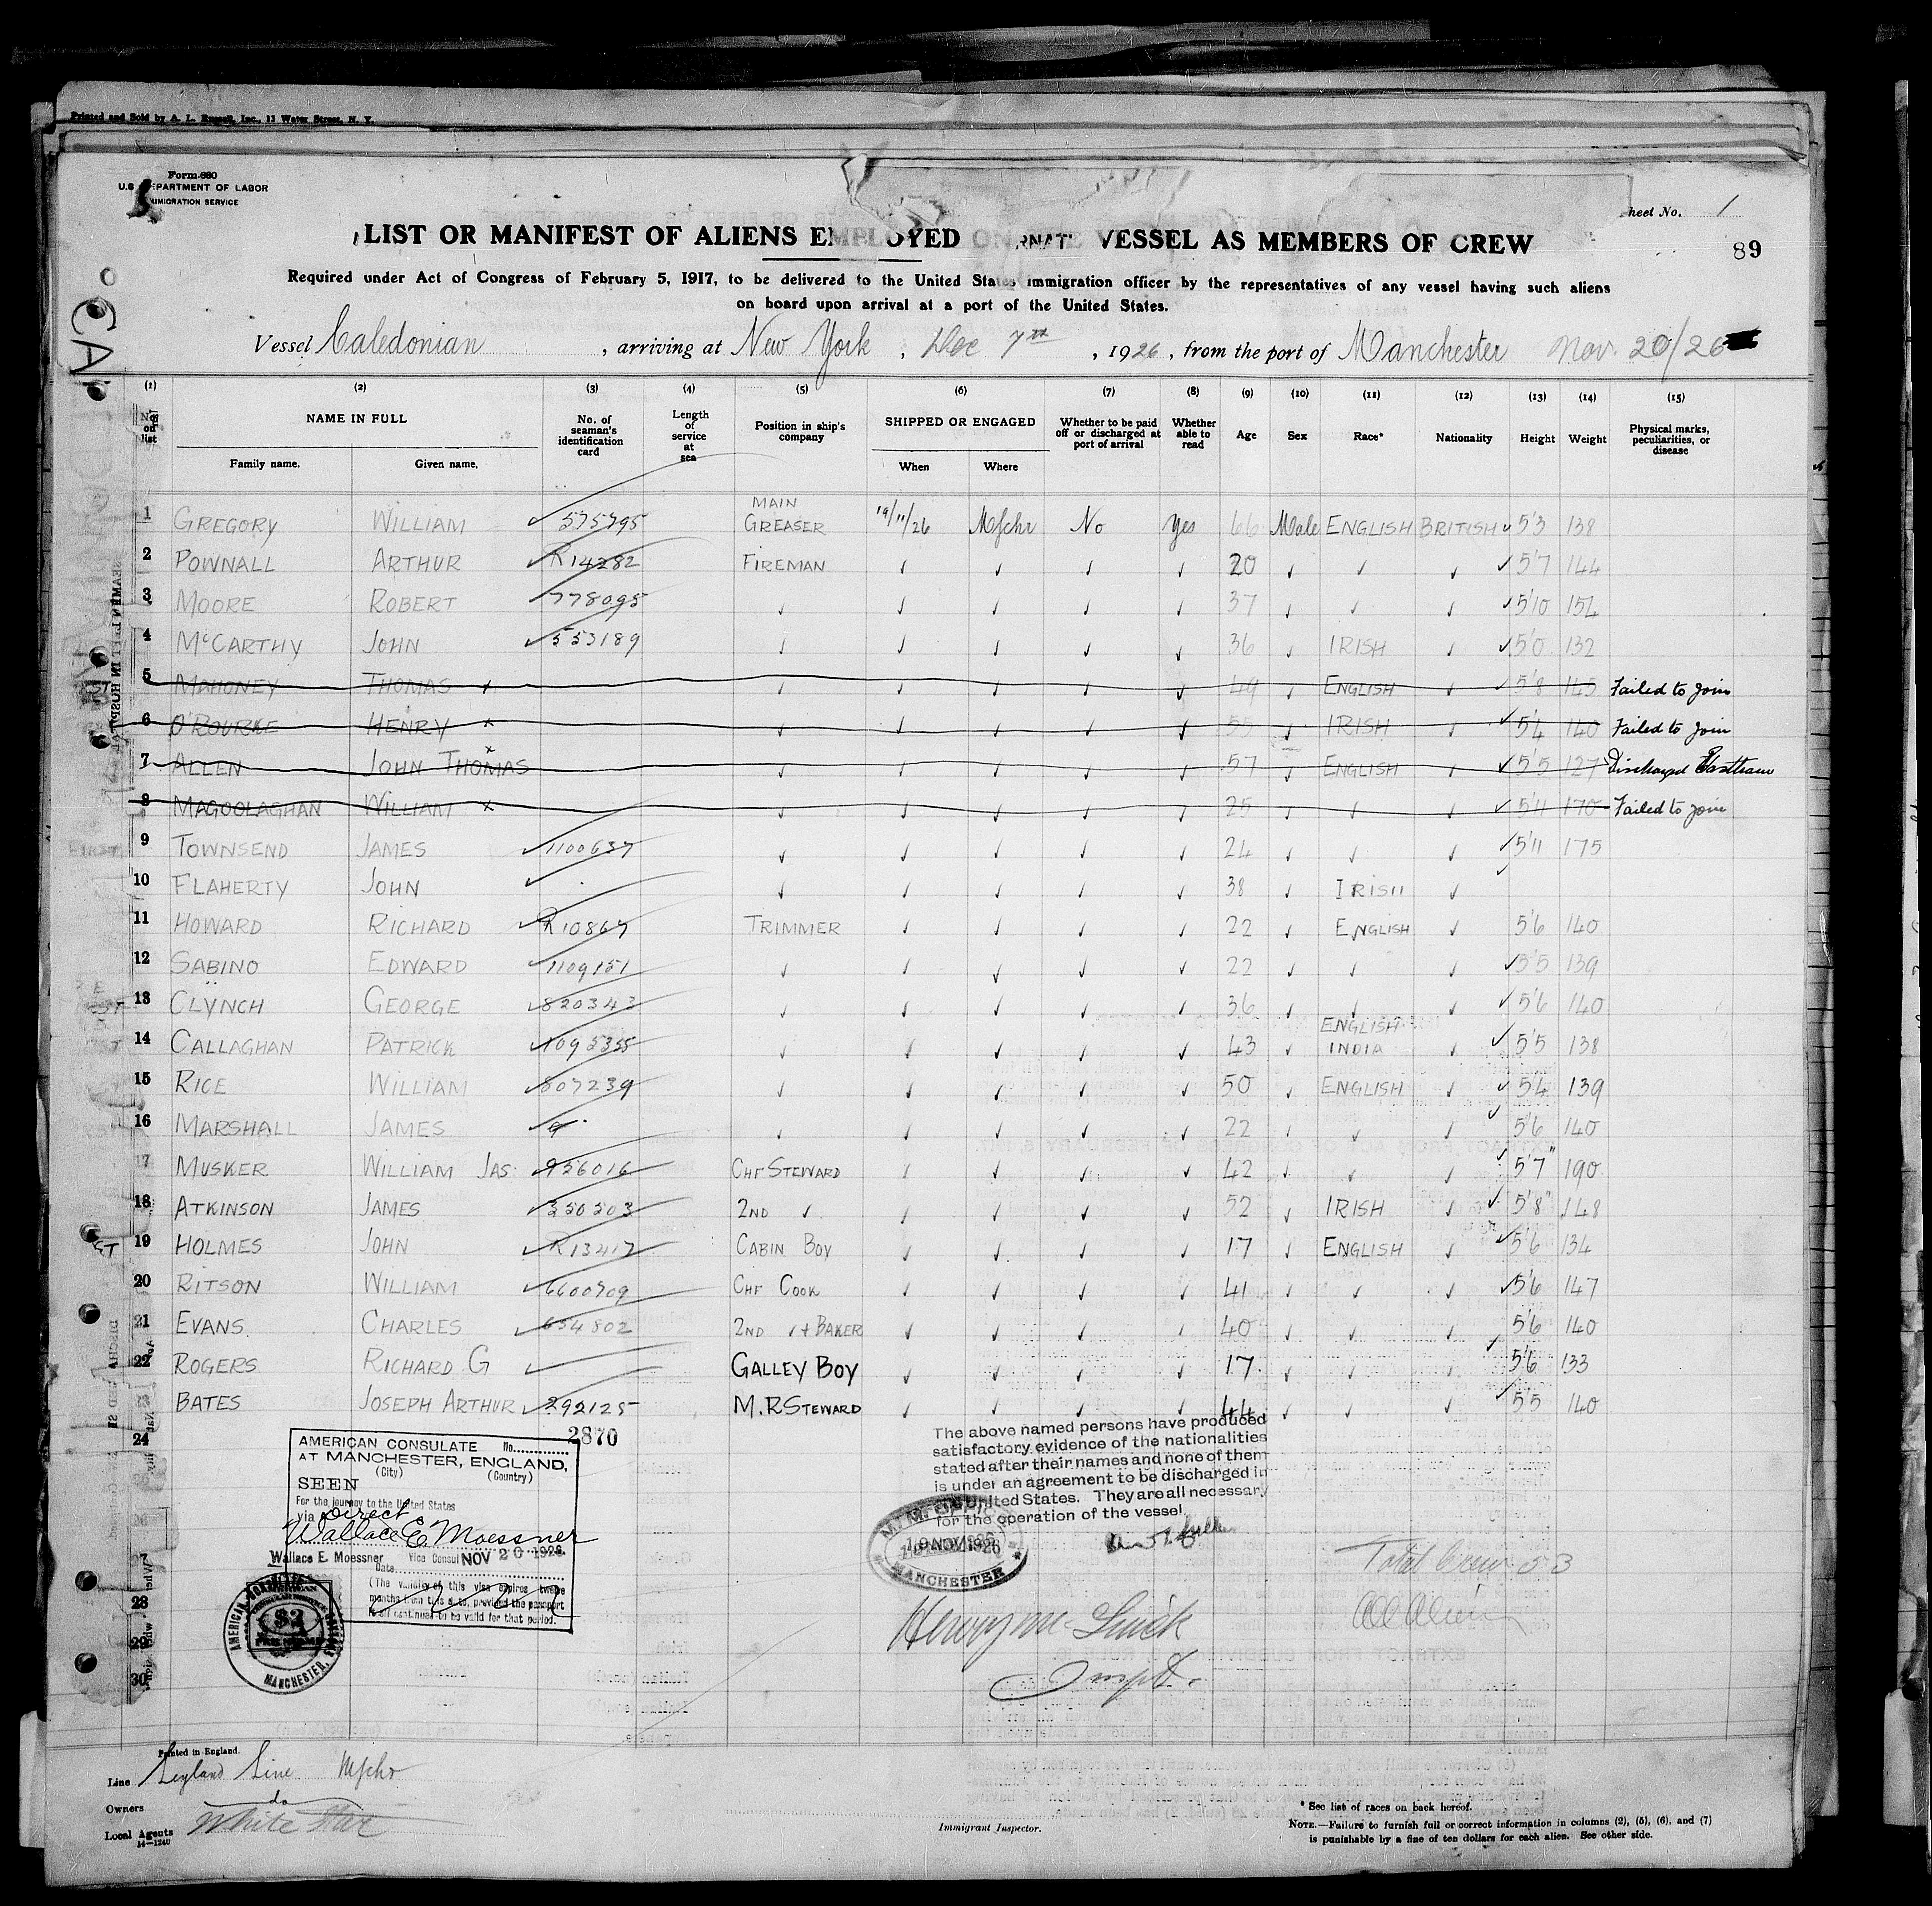 Printed and Sold by A. L. Russell, Inc., 13 Water Street, N. Y.
Form 680
U.S. DEPARTMENT OF LABOR
IMMIGRATION SERVICE
Sheet No. 1
89
LIST OR MANIFEST OF ALIENS EMPLOYED ON THE VESSEL AS MEMBERS OF CREW
Required under Act of Congress of February 5, 1917, to be delivered to the United States immigration officer by the representatives of any vessel having such aliens
on board upon arrival at a port of the United States.
Vessel Caledonian, arriving at New York, Dec 7th, 1926, from the port of Manchester Nov. 20/26
(1) (2) (3) (4) (5) (6) (7) (8) (9) (10) (11) (12) (13) (14) (15)
No. on list NAME IN FULL Family name. Given name. No. of seaman's identification card Length of service at sea Position in ship's company SHIPPED OR ENGAGED When Where Whether to be paid off or discharged at port of arrival Whether able to read Age Sex Race* Nationality Height Weight Physical marks, peculiarities, or disease
1 GREGORY WILLIAM ✓ 575795 MAIN GREASER 19/11/26 M/chr No Yes 66 Male ENGLISH BRITISH ✓ 5'3 138
2 POWNALL ARTHUR ✓ R14282 FIREMAN ✓ ✓ ✓ ✓ 20 ✓ ✓ ✓ ✓ 5'7 144
3 MOORE ROBERT ✓ 778095 ✓ ✓ ✓ ✓ ✓ 37 ✓ ✓ ✓ ✓ 5'10 154
4 McCARTHY JOHN ✓ 553189 ✓ ✓ ✓ ✓ ✓ 36 ✓ IRISH ✓ ✓ 5'0 132
5 MAHONEY THOMAS x ✓ ✓ ✓ ✓ ✓ 49 ✓ ENGLISH ✓ ✓ 5'8 145 Failed to join
6 O'ROURKE HENRY x ✓ ✓ ✓ ✓ ✓ 55 ✓ IRISH ✓ ✓ 5'4 140 Failed to join
7 ALLEN JOHN THOMAS x ✓ ✓ ✓ ✓ ✓ 57 ✓ ENGLISH ✓ ✓ 5'5 127 Discharged Eastham
8 MAGOOLAGHAN WILLIAM x ✓ ✓ ✓ ✓ ✓ 25 ✓ ✓ ✓ ✓ 5'11 170 Failed to join
9 TOWNSEND JAMES ✓ 1100637 ✓ ✓ ✓ ✓ ✓ 24 ✓ ✓ ✓ ✓ 5'11 175
10 FLAHERTY JOHN ✓ ✓ ✓ ✓ ✓ ✓ 38 ✓ IRISH ✓ ✓
11 HOWARD RICHARD ✓ R10867 TRIMMER ✓ ✓ ✓ ✓ 22 ✓ ENGLISH ✓ 5'6 140
12 SABINO EDWARD ✓ 1109151 ✓ ✓ ✓ ✓ ✓ 22 ✓ ✓ ✓ ✓ 5'5 139
13 CLYNCH GEORGE ✓ 820343 ✓ ✓ ✓ ✓ ✓ 36 ✓ ✓ ✓ ✓ 5'6 140
14 CALLAGHAN PATRICK ✓ 1095355 ✓ ✓ ✓ ✓ ✓ 43 ✓ ENGLISH INDIA ✓ ✓ 5'5 138
15 RICE WILLIAM ✓ 807239 ✓ ✓ ✓ ✓ ✓ 50 ✓ ENGLISH ✓ ✓ 5'4 139
16 MARSHALL JAMES ✓ ✓ ✓ ✓ ✓ ✓ 22 ✓ ✓ ✓ ✓ 5'6 140
17 MUSKER WILLIAM JAS. ✓ 936016 CHF STEWARD ✓ ✓ ✓ ✓ 42 ✓ ✓ ✓ ✓ 5'7" 190
18 ATKINSON JAMES ✓ 350503 2ND ✓ ✓ ✓ ✓ ✓ 52 ✓ IRISH ✓ ✓ 5'8" 148
19 HOLMES JOHN ✓ R13417 CABIN BOY ✓ ✓ ✓ ✓ 17 ✓ ENGLISH ✓ ✓ 5'6 134
20 RITSON WILLIAM ✓ 6600709 CHF COOK ✓ ✓ ✓ ✓ 41 ✓ ✓ ✓ ✓ 5'6 147
21 EVANS. CHARLES ✓ 654802 2ND ✓ + BAKER ✓ ✓ ✓ ✓ 40 ✓ ✓ ✓ 5'6 140
22 ROGERS RICHARD G ✓ GALLEY BOY ✓ ✓ ✓ ✓ 17 ✓ ✓ ✓ ✓ 5'6 133
23 BATES JOSEPH ARTHUR ✓ 292125 M.R STEWARD ✓ ✓ ✓ ✓ 44 ✓ ✓ ✓ ✓ 5'5 140
24
28
29
30
AMERICAN CONSULATE No. 2870
AT MANCHESTER, ENGLAND,
(City) (Country)
SEEN
For the journey to the United States
via Direct
Wallace E. Moessner
Wallace E. Moessner Vice Consul
Date NOV 20 1926
(The validity of this visa expires twelve
months from this date, provided the passport
is continued to be valid for that period.
AMERICAN CONSULATE
$2
MANCHESTER,
The above named persons have produced
satisfactory evidence of the nationalities
stated after their names and none of them
is under an agreement to be discharged in
United States. They are all necessary
for the operation of the vessel.
19 NOV 1926
MANCHESTER
Total Crew 53
All Alien
Printed in England.
Line Leyland Line M/chr
Owners do
Local Agents White Star
14—1240
Immigrant Inspector.
* See list of races on back hereof.
NOTE.—Failure to furnish full or correct information in columns (2), (5), (6), and (7)
is punishable by a fine of ten dollars for each alien. See other side.